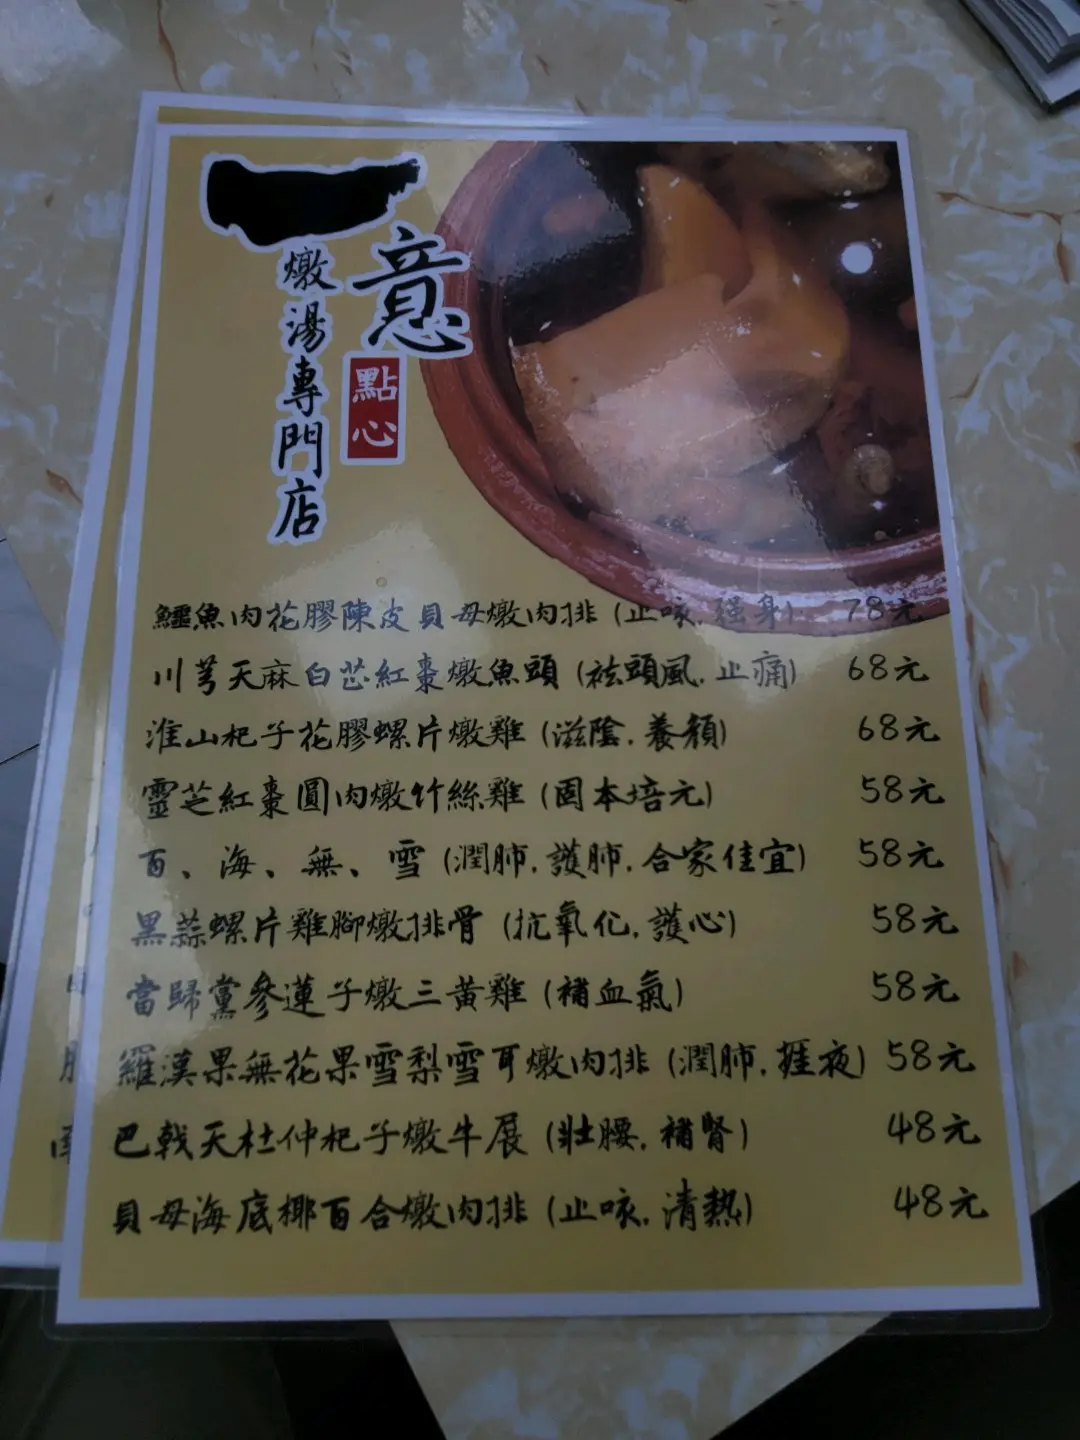 意
點心
燉湯專門店
鱷魚肉花膠陳皮貝母燉肉排 (止咳.强身) 78元
川芎天麻白芷紅棗燉魚頭 (袪頭風.止痛) 68元
淮山杞子花膠螺片燉雞 (滋陰.養顏) 68元
靈芝紅棗圓肉燉竹絲雞 (固本培元) 58元
百、海、無、雪 (潤肺.護肺.合家佳宜) 58元
黑蒜螺片雞腳燉排骨 (抗氧化.護心) 58元
當歸黨參蓮子燉三黃雞 (補血氣) 58元
羅漢果無花果雪梨雪耳燉肉排 (潤肺.捱夜) 58元
巴戟天杜仲杞子燉牛展 (壯腰.補腎) 48元
貝母海底椰百合燉肉排 (止咳.清熱) 48元